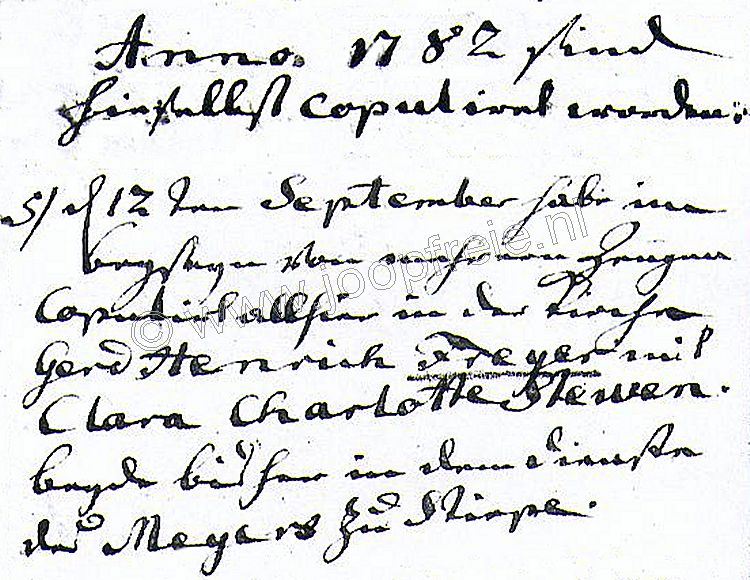 Anno. 1782 sind
hieselbst copulirel worden.
5) d 12 ten September habe im
beyseyn von mehrern Zeugen
© www.joopfreie.nl
Copulirt allhier in der Kirche
Gerd Henrich Freyer mit
Clara Charlotte Stewen.
beyde bisher in dem Dienste
des Meyers zu Stirpe.